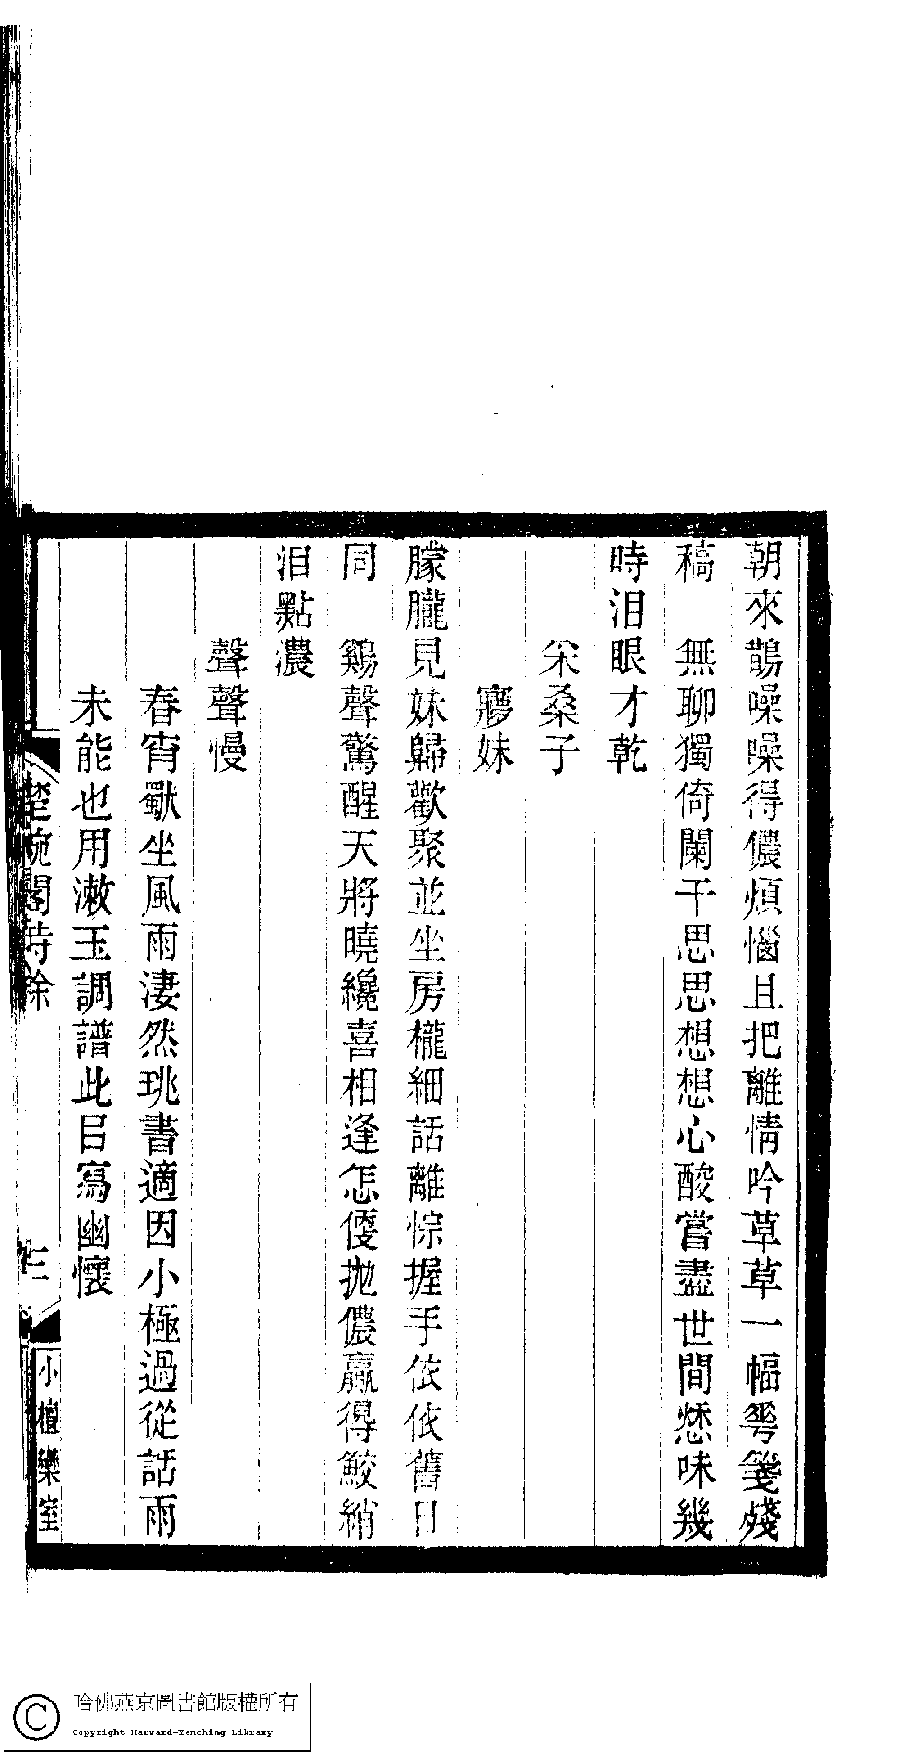 朝來鵲噪噪得儂煩惱且把離情吟草草一幅咢箋殘
稿　無聊獨倚闌干思思想想心酸嘗盡世間愁味幾
時泪眼才乾
采桑子
寱妹
朦朧見妹歸歡聚並坐房櫳細話離悰握手依依舊日
同　鷄聲驚醒天將曉纔喜相逢怎便拋儂贏得鮫綃
泪點濃
聲聲慢
春宵獨坐風雨淒然珧書適因小極過從話雨
未能也用漱玉調譜此㠯寫幽懷
楚畹閣詩餘
三
小檀欒室
哈佛燕京圖書館版權所有
Copyright Harvard-Yenching Library